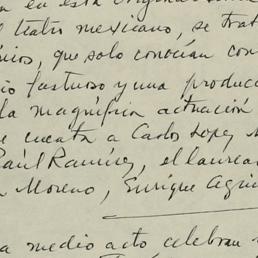 en esta original
l teatro mexicano, se trat
nios, que solo conocían con
io fastuoso y una produc
la magnífica actuación
e cuenta a Carlos Lopez M
Raúl Ramírez, el laurea
n Moreno, Enrique Agui
a medio acto, celebran